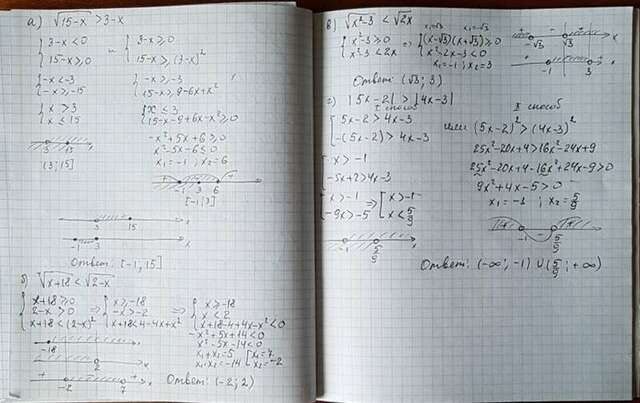 а) √15-x > 3-x
{ 3-x<0
15-x≥0
и
{ 3-x≥0
15-x≥(3-x)²
{ -x<-3
-x≥-15
{ -x≥-3
15-x≥9-6x+x²
{ x>3
x≤15
{ x≤3
15-x-9+6x-x²≥0
-x²+5x+6≥0
x²-5x-6≤0
x₁=-1; x₂=6
3 15 x
(3;15]
-1 3 6
[-1;3]
3 15 x
-1 3 x
Ответ: [-1;15]
б) √x+18 < √2-x
{ x+18≥0
2-x>0
x+18<(2-x)²
⇒ { x≥-18
-x>-2
x+18<4-4x+x²
⇒ { x≥-18
x<2
x+18-4+4x-x²<0
-x²+5x+14<0
x²-5x-14<0
x₁+x₂=5
x₁·x₂=-14
[ x₁=7
x₂=-2
-18 x
2 x
+ -2 7 + x
Ответ: (-2;2)
в) √x²-3 < √2x
{ x²-3≥0
x²-3<2x
x₁=√3 x₂=-√3
⇒ { (x-√3)(x+√3)≥0
x²-2x-3<0
x₁=-1; x₂=3
+ -√3 √3 x
+ -1 3 x
Ответ: (√3;3)
г) |5x-2| > |4x-3|
I способ
[ 5x-2>4x-3
-(5x-2)>4x-3
[ x>-1
-5x+2>4x-3
[ x>-1
-9x>-5
⇒ [ x>-1
x<5/9
-1 5/9 x
или
II способ
(5x-2)²>(4x-3)²
25x²-20x+4>16x²-24x+9
25x²-20x+4-16x²+24x-9>0
9x²+4x-5>0
x₁=-1; x₂=5/9
+ -1 - 5/9 +
Ответ: (-∞;-1)∪(5/9;+∞)